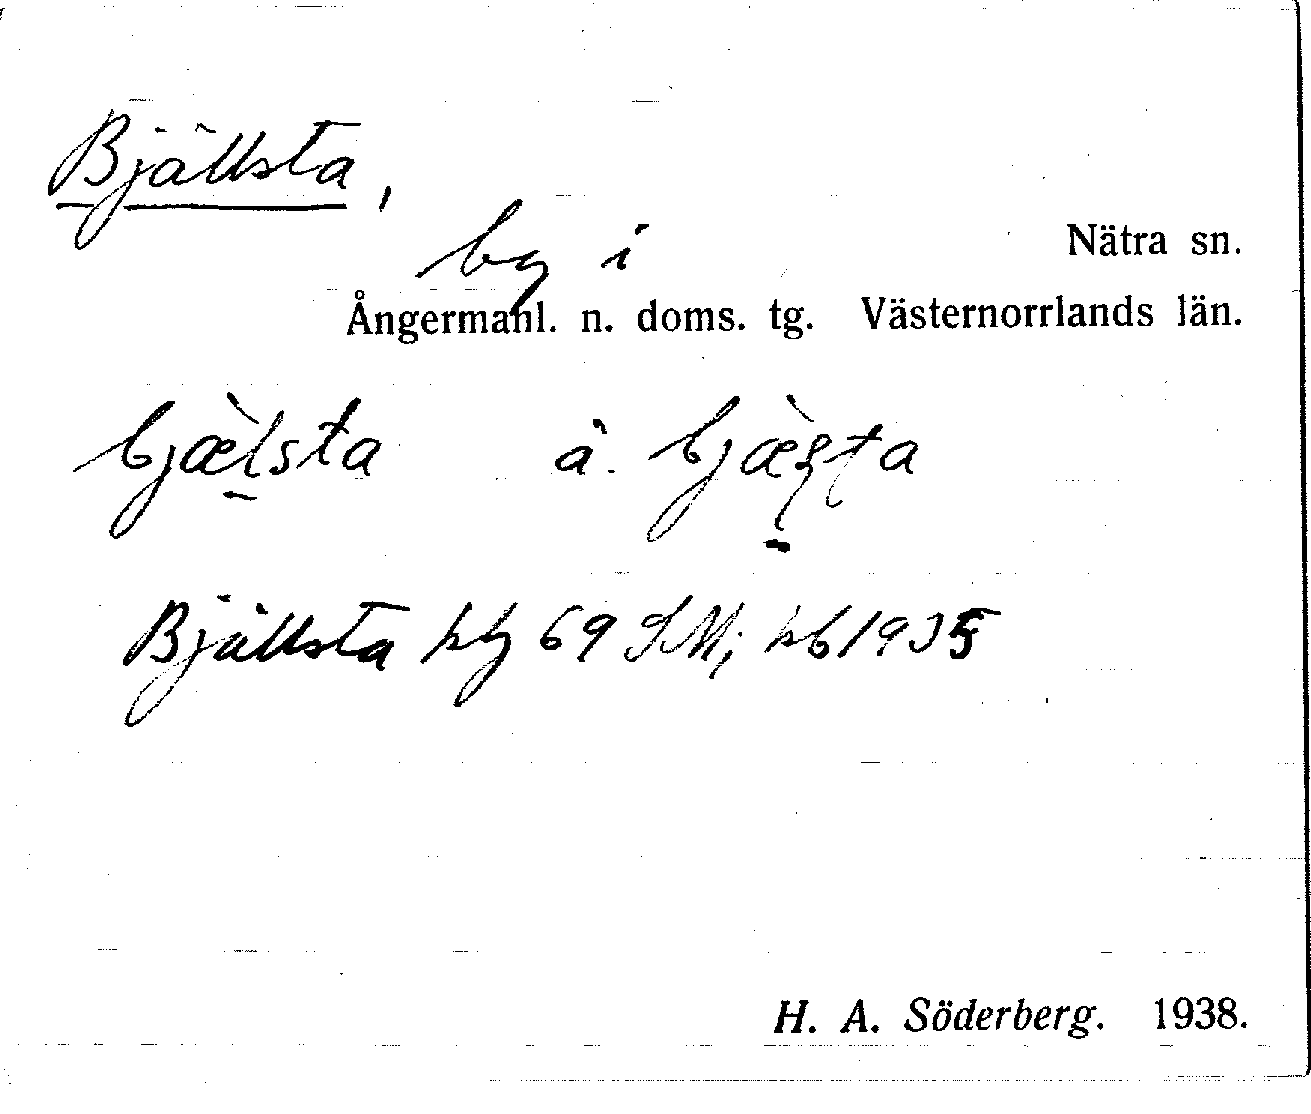 Bjällsta,
by i
Nätra sn.
Ångermanl. n. doms. tg. Västernorrlands län.
bjæ̀lsta ä. bjæ̀ʂta
Bjällsta hfl 69 SM; kb 1935
H. A. Söderberg. 1938.